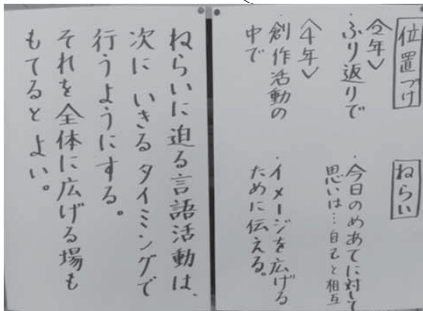 位置づけ
・ふり返りで
〈4年〉
・創作活動の
中で
ねらい
・今日のめあてに対して
思いは…自己と相互
・イメージを広げる
ために伝える。
ねらいに迫る言語活動は、
次にいきるタイミングで
行うようにする。
それを全体に広げる場も
もてるとよい。